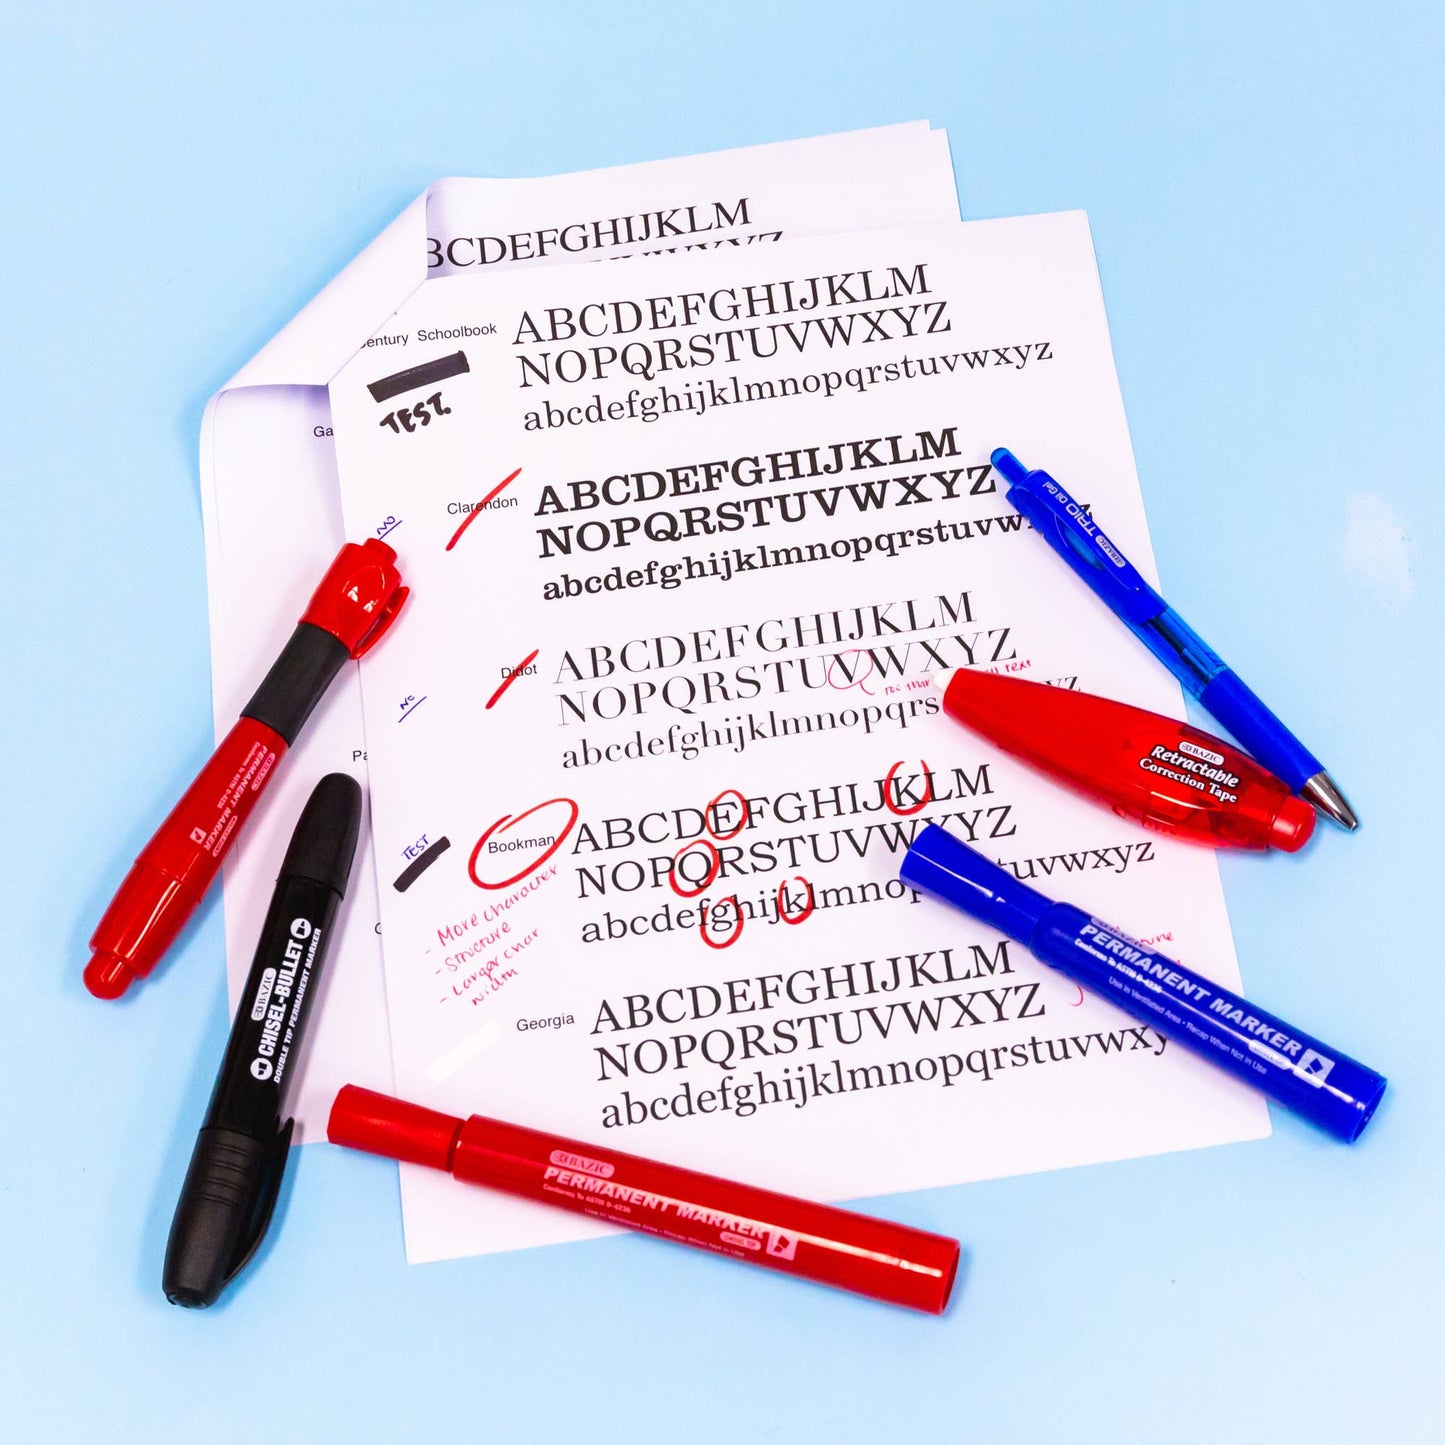 BCDEFGHIJKLM
entury Schoolbook
ABCDEFGHIJKLM
NOPQRSTUVWXYZ
abcdefghijklmnopqrstuvwxyz
TEST.
Ga
Clarendon
ABCDEFGHIJKLM
NOPQRSTUVWXYZ
abcdefghijklmnopqrstuvw
NO
Didot
ABCDEFGHIJKLM
NOPQRSTUVWXYZ
abcdefghijklmnopqrs yz
TEXT
NO
Pa
Bookman
ABCDEFGHIJKLM
NOPQRSTUVWXYZ
abcdefghijklmnop uvwxyz
TEST
- More character
- Structure
- Larger char
width
Georgia
ABCDEFGHIJKLM
NOPQRSTUVWXYZ
abcdefghijklmnopqrstuvwxy
BAZIC
TRIO Oil Gel
BAZIC
Retractable
Correction Tape
BAZIC
PERMANENT MARKER
Conforms To ASTM D-4236
BAZIC
CHISEL-BULLET
DOUBLE TIP PERMANENT MARKER
PERMANENT MARKER
Conforms To ASTM D-4236
Use in Ventilated Area • Recap When Not in Use
BAZIC
PERMANENT MARKER
Conforms To ASTM D-4236
Use in Ventilated Area • Recap When Not in Use
CHISEL TIP